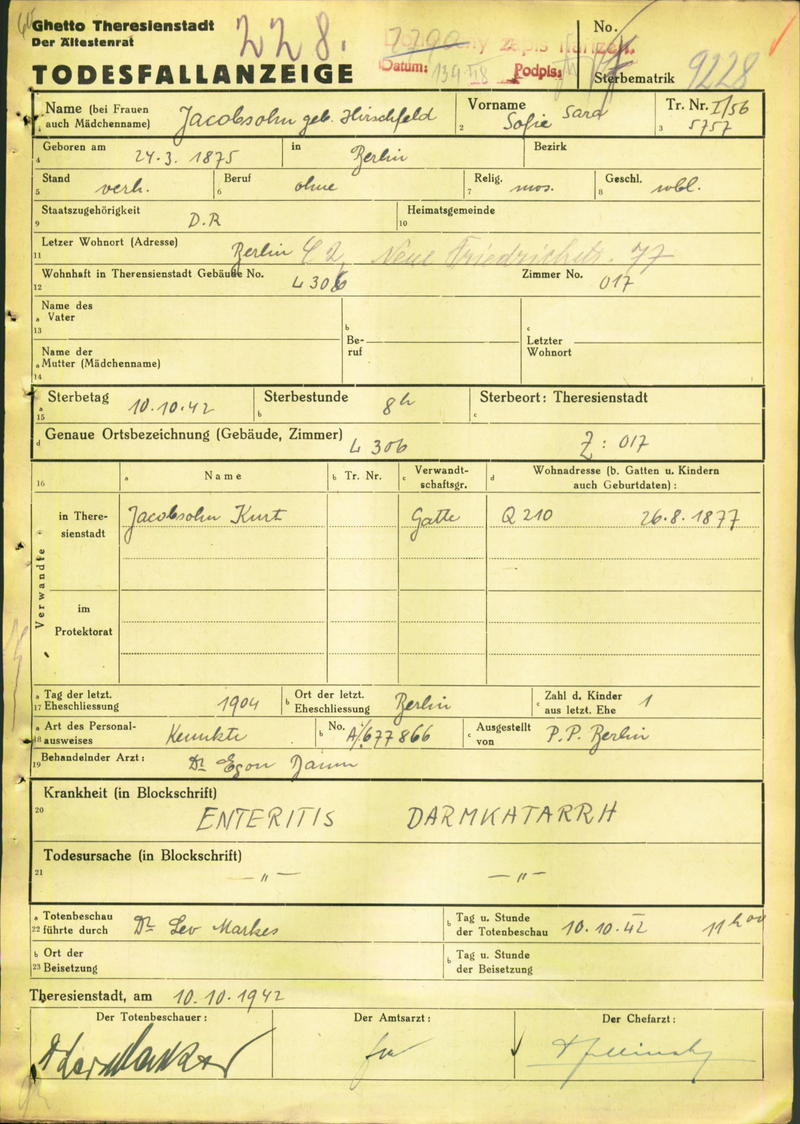 Ghetto Theresienstadt
Der Ältestenrat
228.
No.
TODESFALLANZEIGE
Datum:
Podpis:
Sterbematrik 9228
Name (bei Frauen auch Mädchenname) Jacobsohn geb. Hirschfeld
Vorname Sofie Sara
2
Tr. Nr. I/56
3 5757
4 Geboren am 24.3. 1875 in Berlin Bezirk
5 Stand verh. 6 Beruf ohne 7 Relig. mos. 8 Geschl. wbl.
9 Staatszugehörigkeit D.R 10 Heimatsgemeinde
11 Letzer Wohnort (Adresse) Berlin C2, Neue Friedrichstr. 77
12 Wohnhaft in Therensienstadt Gebäude No. L 306 Zimmer No. 017
Name des
a Vater
13
b Beruf
c Letzter Wohnort
Name der
a Mutter (Mädchenname)
14
a 15 Sterbetag 10.10.42 b Sterbestunde 8h c Sterbeort: Theresienstadt
d Genaue Ortsbezeichnung (Gebäude, Zimmer) L 306 Z: 017
16 a Name b Tr. Nr. c Verwandtschaftsgr. d Wohnadresse (b. Gatten u. Kindern auch Geburtdaten):
Verwandte
in Theresienstadt Jacobsohn Kurt Gatte Q 210 26.8.1877
im
Protektorat
a 17 Tag der letzt. Eheschliessung 1904 b Ort der letzt. Eheschliessung Berlin c Zahl d. Kinder aus letzt. Ehe 1
a 18 Art des Personalausweises Kennkte b No. A/677866 c Ausgestellt von P.P. Berlin
19 Behandelnder Arzt: Dr Egon
Krankheit (in Blockschrift)
20 ENTERITIS DARMKATARRH
Todesursache (in Blockschrift)
21 — " — — " —
a 22 Totenbeschau führte durch Dr Lev Markes b Tag u. Stunde der Totenbeschau 10.10.42 11h00
b 23 Ort der Beisetzung b Tag u. Stunde der Beisetzung
Theresienstadt, am 10.10.1942
Der Totenbeschauer: Der Amtsarzt: Der Chefarzt: